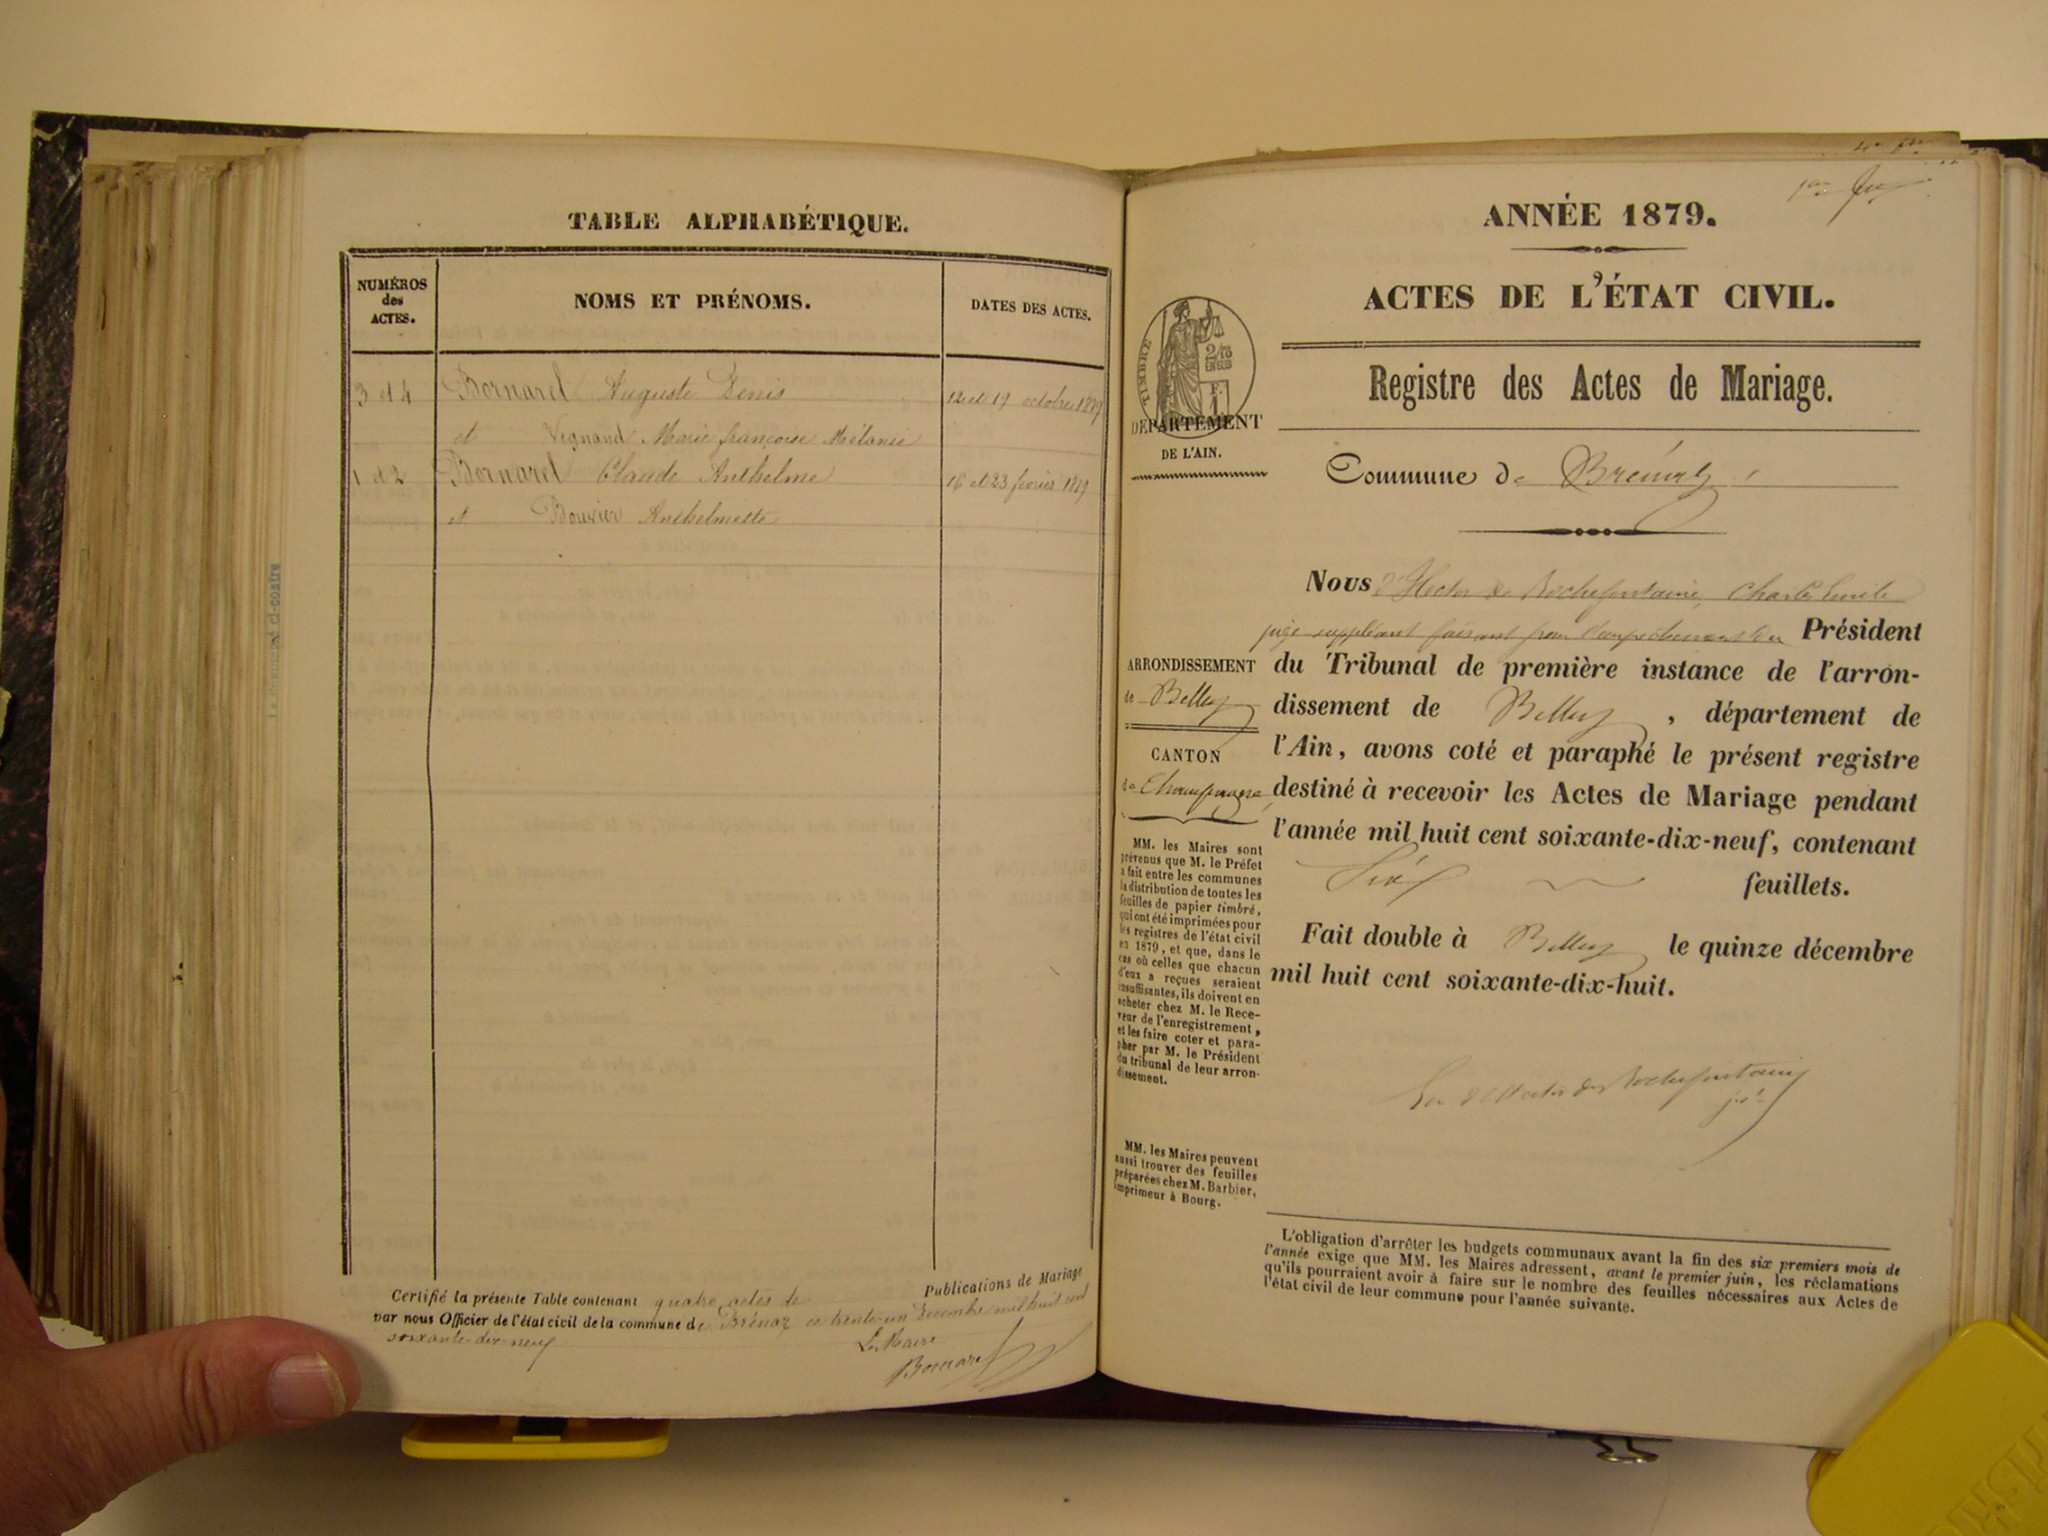 TABLE ALPHABÉTIQUE.
NUMÉROS
des
ACTES.
NOMS ET PRÉNOMS.
DATES DES ACTES.
3 et 4 Bornarel Auguste Denis 12 et 19 octobre 1879
et Vegnand Marie françoise Mélanie
1 et 2 Bornarel Claude Anthelme 16 et 23 février 1879
et Bouvier Anthelmette
Certifié la présente Table contenant quatre actes de Publications de Mariage
par nous Officier de l'état civil de la commune de Brénaz ce trente-un Décembre mil huit cent
soixante-dix-neuf
Le Maire
Bornarel
1er
ANNÉE 1879.
ACTES DE L'ÉTAT CIVIL.
Registre des Actes de Mariage.
TIMBRE
DÉPARTEMENT
DE L'AIN.
Commune de Brénaz
Nous d'Hector de Rochefontaine, Charles Emile
juge suppléant faisant pour l'empêchement du Président
du Tribunal de première instance de l'arron-
dissement de Belley, département de
l'Ain, avons coté et paraphé le présent registre
destiné à recevoir les Actes de Mariage pendant
l'année mil huit cent soixante-dix-neuf, contenant
Six feuillets.
Fait double à Belley le quinze décembre
mil huit cent soixante-dix-huit.
d'Hector de Rochefontaine
ARRONDISSEMENT
de Belley
CANTON
de Champagne
MM. les Maires sont
prévenus que M. le Préfet
a fait entre les communes
la distribution de toutes les
feuilles de papier timbré,
qui ont été imprimées pour
les registres de l'état civil
en 1879, et que, dans le
cas où celles que chacun
d'eux a reçues seraient
insuffisantes, ils doivent en
acheter chez M. le Rece-
veur de l'enregistrement,
et les faire coter et para-
pher par M. le Président
du tribunal de leur arron-
dissement.
MM. les Maires peuvent
aussi trouver des feuilles
préparées chez M. Barbier,
imprimeur à Bourg.
L'obligation d'arrêter les budgets communaux avant la fin des six premiers mois de
l'année exige que MM. les Maires adressent, avant le premier juin, les réclamations
qu'ils pourraient avoir à faire sur le nombre des feuilles nécessaires aux Actes de
l'état civil de leur commune pour l'année suivante.